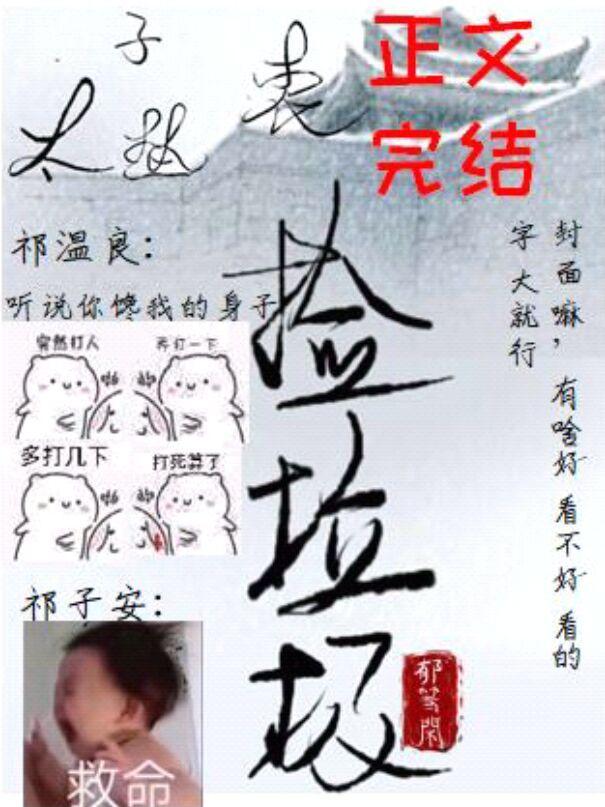 太子热衷
捡垃圾
正文
完结
祁温良：
听说你馋我的身子
突然打人
再打一下
啪
啪
多打几下
打死算了
啪
啪
祁子安：
救命
封面嘛，有啥好看不好看的
字大就行